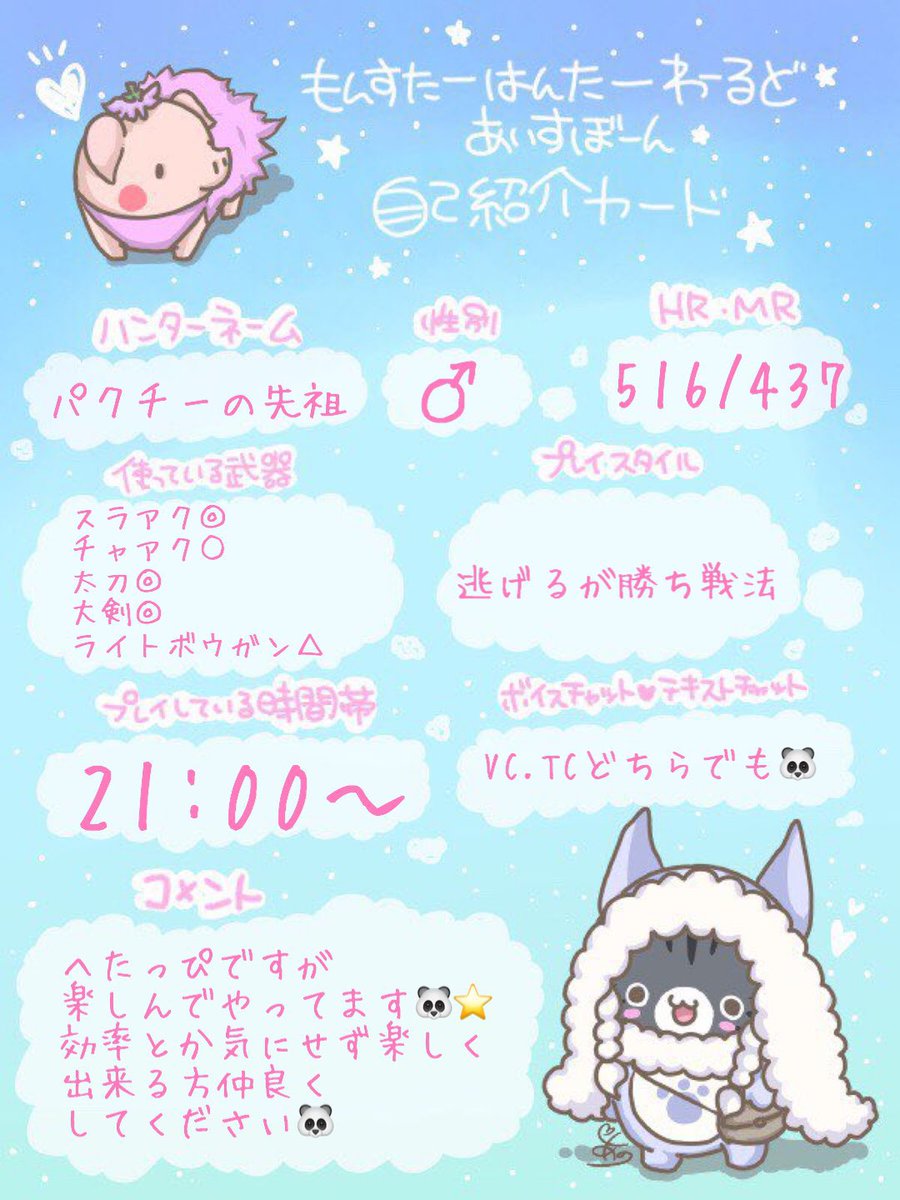 もんすたーはんたーわーるど
あいすぼーん
自己紹介カード
ハンターネーム
パクチーの先祖
性別
♂
HR・MR
516/437
使っている武器
スラアク◎
チャアク〇
太刀◎
大剣◎
ライトボウガン△
プレイスタイル
逃げるが勝ち戦法
プレイしている時間帯
21:00〜
ボイスチャット♥テキストチャット
VC.TCどちらでも🐼
コメント
へたっぴですが
楽しんでやってます🐼⭐
効率とか気にせず楽しく
出来る方仲良く
してください🐼